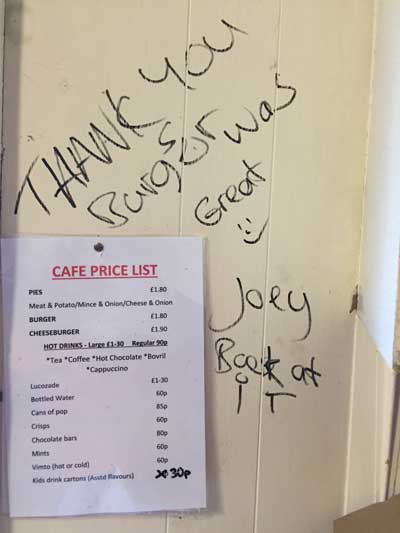 THANK YOU
Burger was
Great :)
Joey
Back at
iT
CAFE PRICE LIST
PIES £1.80
Meat & Potato/Mince & Onion/Cheese & Onion
BURGER £1.80
CHEESEBURGER £1.90
HOT DRINKS - Large £1-30 Regular 90p
*Tea *Coffee *Hot Chocolate *Bovril
*Cappuccino
Lucozade £1-30
Bottled Water 60p
Cans of pop 85p
Crisps 60p
Chocolate bars 80p
Mints 60p
Vimto (hot or cold) 60p
Kids drink cartons (Asstd flavours) 30p